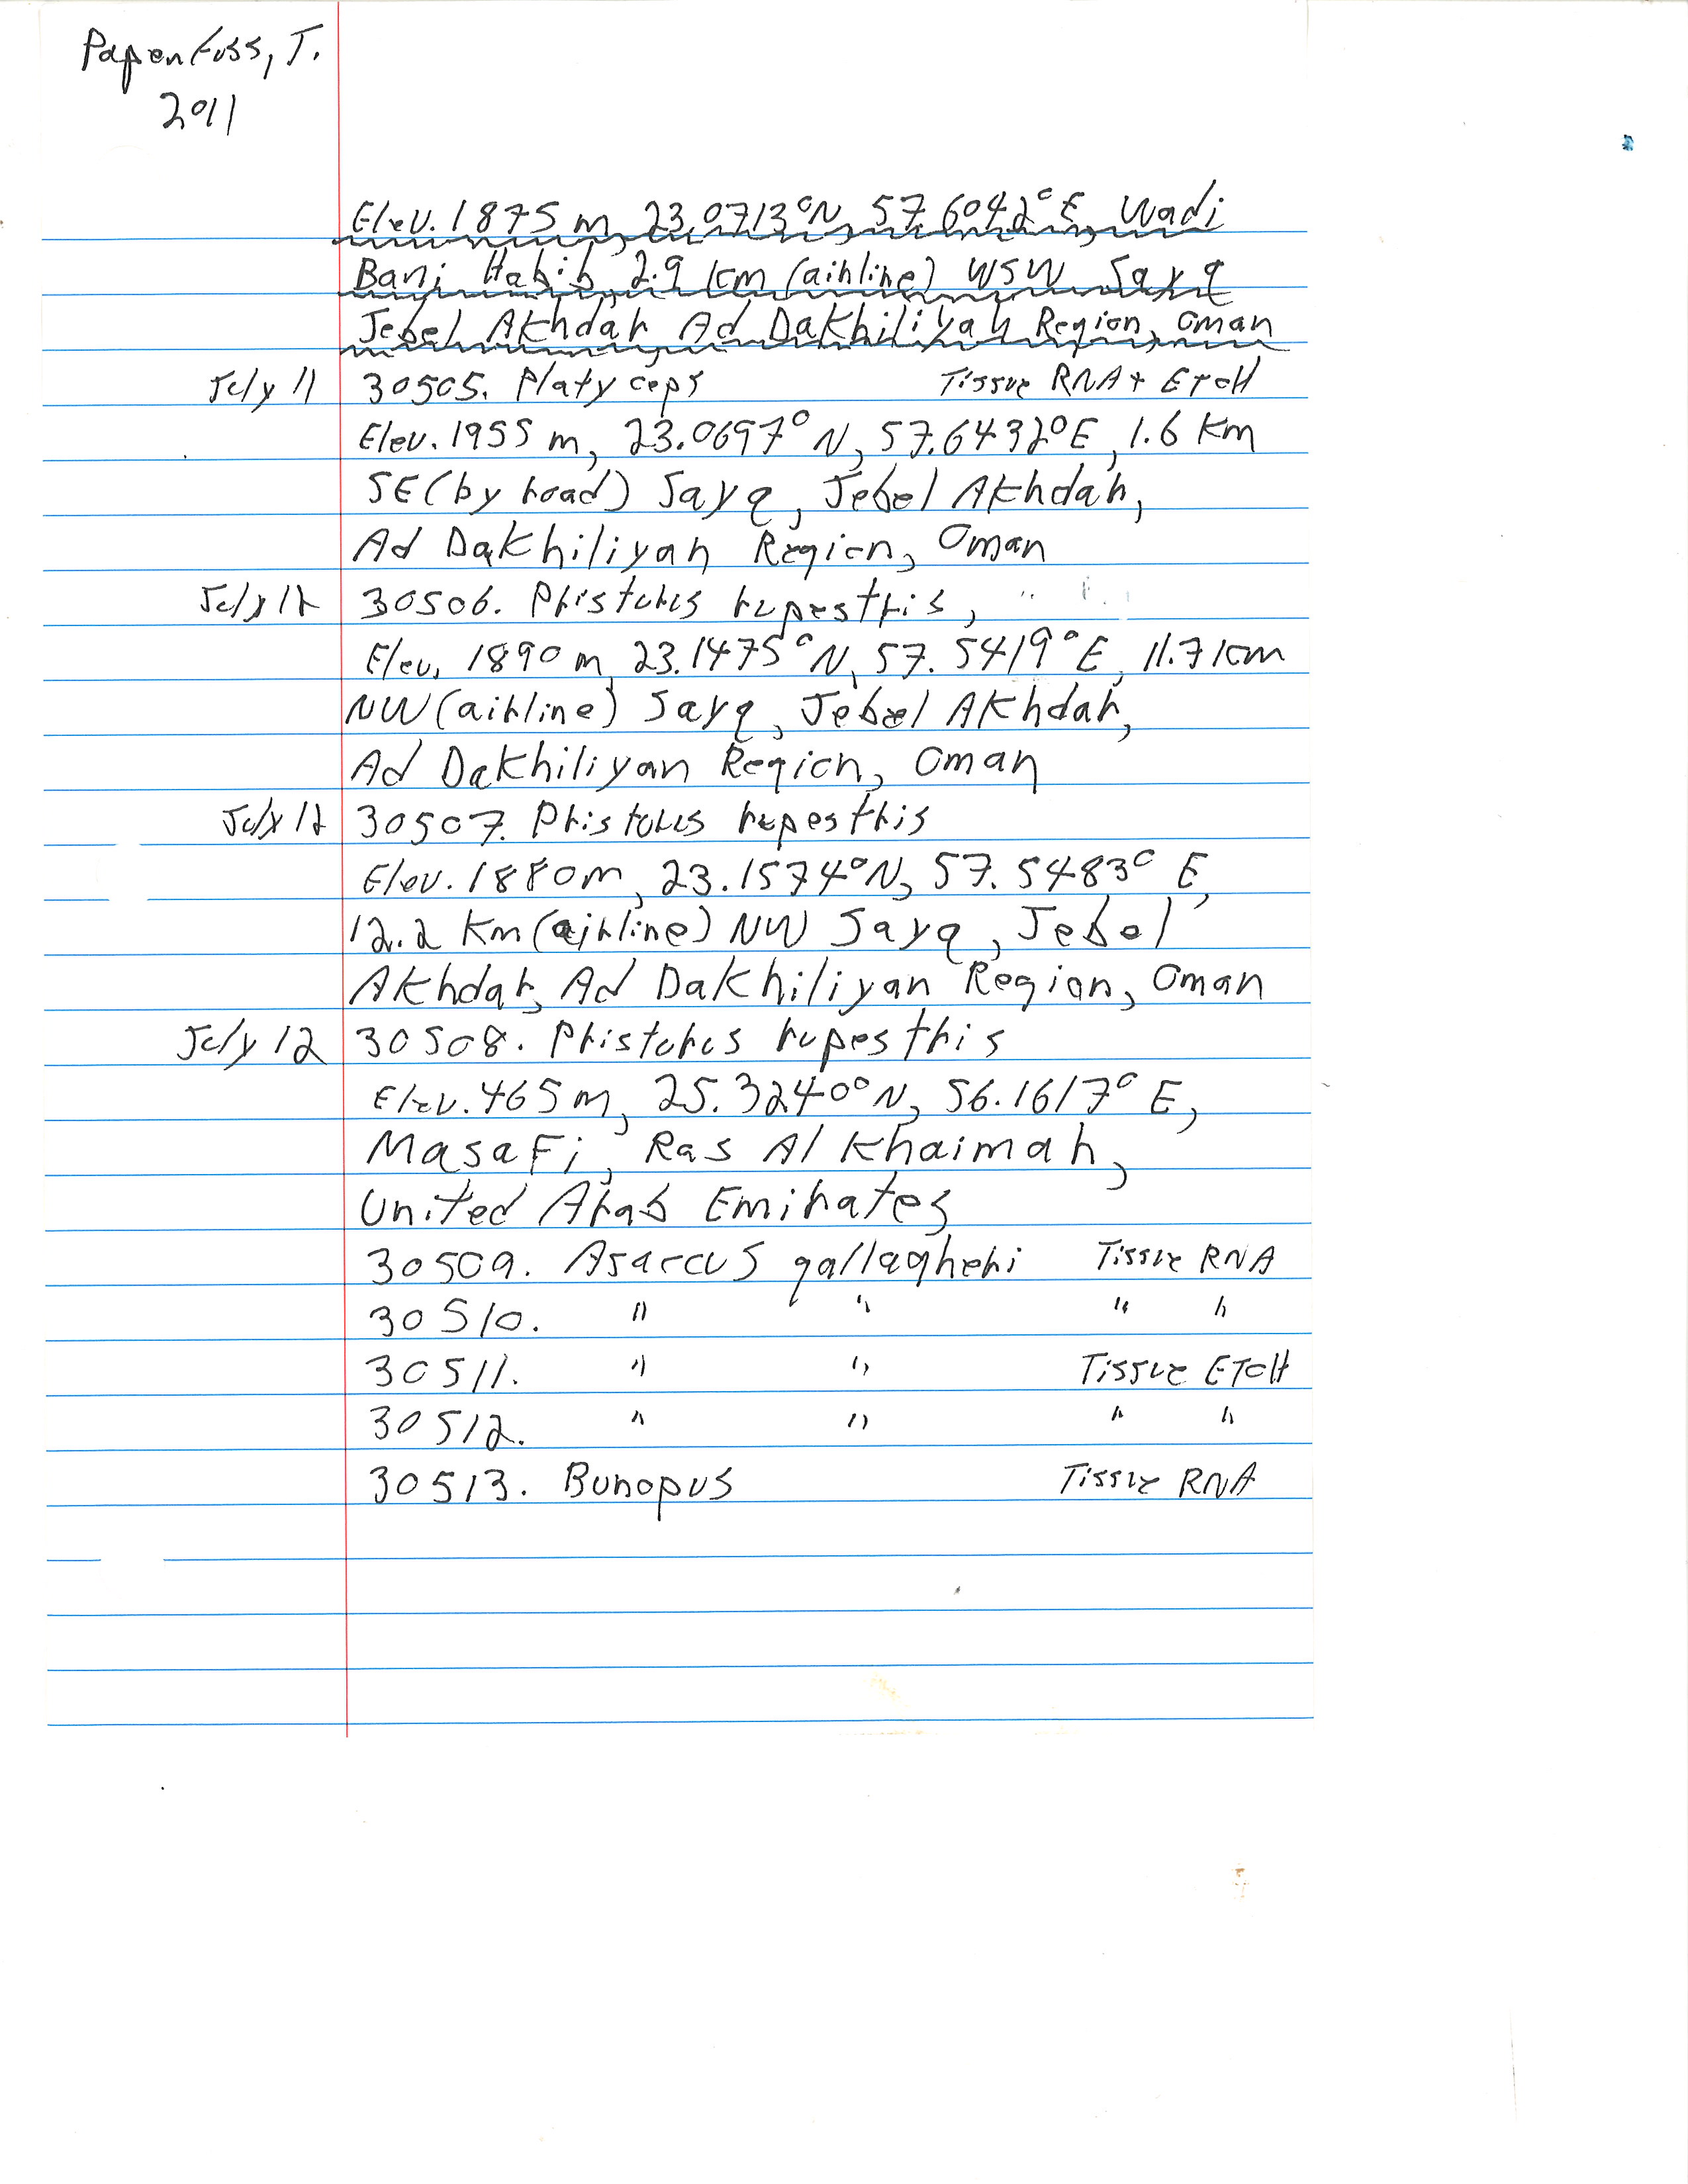 Papenfuss, T.
2011
Elev. 1875 m, 23.0713°N, 57.6042°E, Wadi
Bani Habib, 2.9 km (airline) WSW Sayq
Jebel Akhdar Ad Dakhiliyah Region, Oman
July 11 30505. Platyceps Tissue RNA + EtOH
Elev. 1955 m, 23.0697°N, 57.6432°E, 1.6 Km
SE (by road) Sayq, Jebel Akhdar,
Ad Dakhiliyan Region, Oman
July 12 30506. Pristurus rupestris, "
Elev. 1890 m, 23.1475°N, 57.5419°E, 11.7 km
NW (airline) Sayq, Jebel Akhdar,
Ad Dakhiliyan Region, Oman
July 12 30507. Pristurus rupestris
Elev. 1880 m, 23.1574°N, 57.5483° E,
12.2 Km (airline) NW Sayq, Jebel
Akhdar, Ad Dakhiliyan Region, Oman
July 12 30508. Pristurus rupestris
Elev. 465 m, 25.3240°N, 56.1617° E,
Masafi, Ras Al Khaimah,
United Arab Emirates
30509. Asaccus gallagheri Tissue RNA
30510. " " " "
30511. " " Tissue EtOH
30512. " " " "
30513. Bunopus Tissue RNA